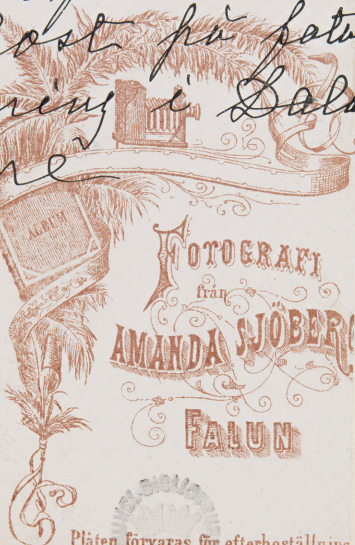 på foto
i Dala
ALBUM
FOTOGRAFI
från
AMANDA SJÖBERG
FALUN
Plåten förvaras för efterbeställning